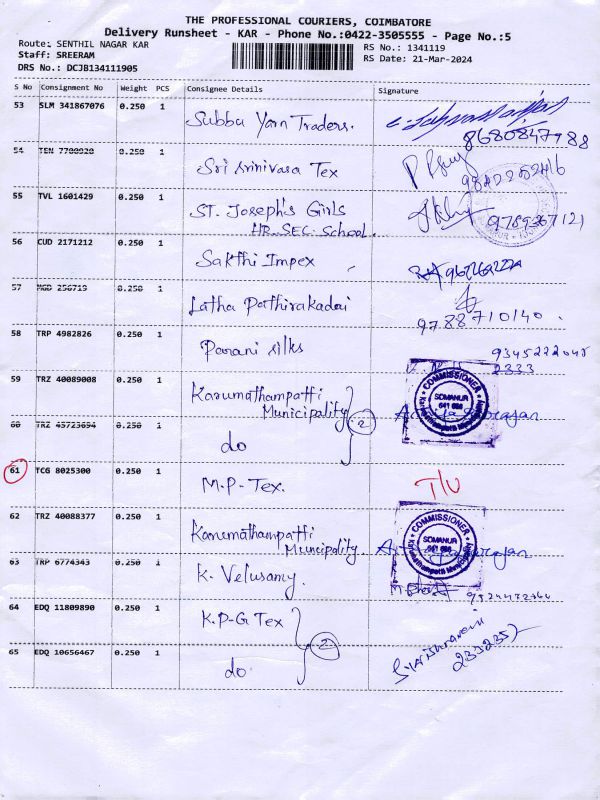 THE PROFESSIONAL COURIERS, COIMBATORE
Delivery Runsheet - KAR - Phone No.:0422-3505555 - Page No.:5
Route: SENTHIL NAGAR KAR
Staff: SREERAM
DRS No.: DCJB134111905
RS No.: 1341119
RS Date: 21-Mar-2024
S No Consignment No Weight PCS Consignee Details Signature
53 SLM 341867076 0.250 1 Subbu Yarn Traders.
8680847988
54 TEN 0.250 1 Sri Srinivasa Tex
55 TVL 1601429 0.250 1 ST. Joseph's Girls
HR. SEC. School.
9789367121
56 CUD 2171212 0.250 1 Sakthi Impex
57 0.250 1 Latha Pathirakadai
9788710140.
58 TRP 4982826 0.250 1 Parani silks
9345222045
2333
59 TRZ 40089008 0.250 1 Karumathampatti
Municipality
COMMISSIONER
SOMANUR
Karumathampatti Municipality
60 TRZ 45723694 0.250 1 do
2
61 TCG 8025300 0.250 1 M.P. Tex.
62 TRZ 40088377 0.250 1 Karumathampatti
Municipality
COMMISSIONER
SOMANUR
Karumathampatti Municipality
63 TRP 6774343 0.250 1 K. Velusamy.
64 EDQ 11809890 0.250 1 K.P-G Tex
2
65 EDQ 10656467 0.250 1 do